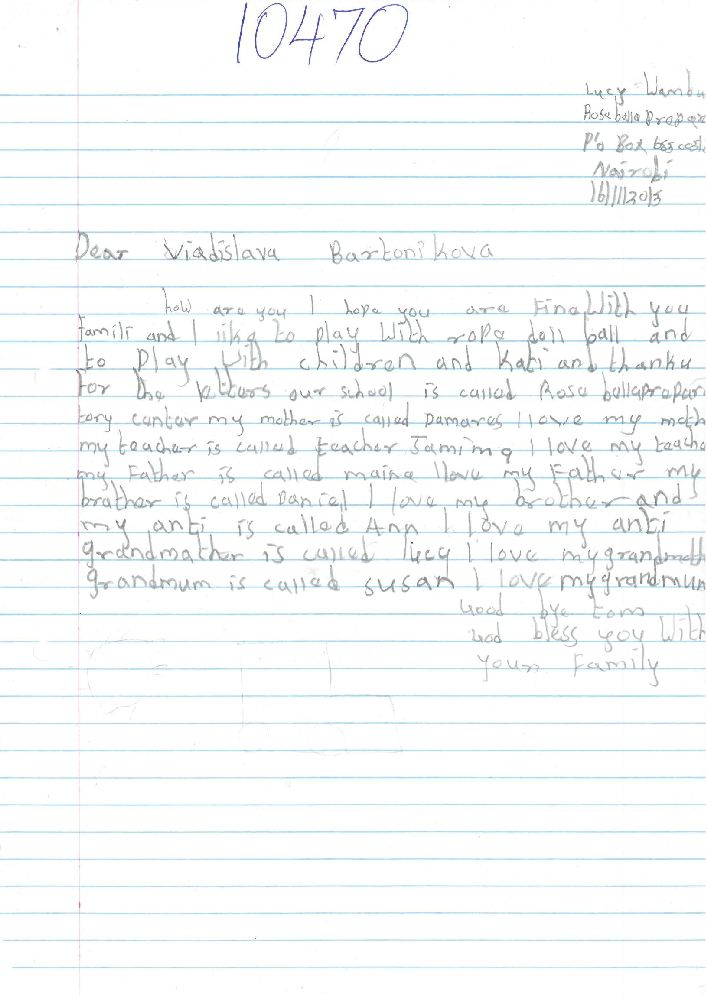 10470
Lucy Wambu
Rosebella Prepar
P'o Box
Nairobi
16/11/2015
Dear Viadislava Bartonikova
how are you I hope you are Fine With you
Famili and I like to play With rope doll ball and
to play With children and Kati and thanku
For the letters our school is called Rose bellaprepar
tory center my mother is called Damares I love my moth
my teacher is called teacher I love my teache
my Father is called maina I love my Father my
brather is called Daniel I love my brother and
my anti is called Ann I love my anti
grandmather is called lucy I love mygrandmoth
grandmum is called susan I love mygrandmum
Good bye
God bless you With
your Family